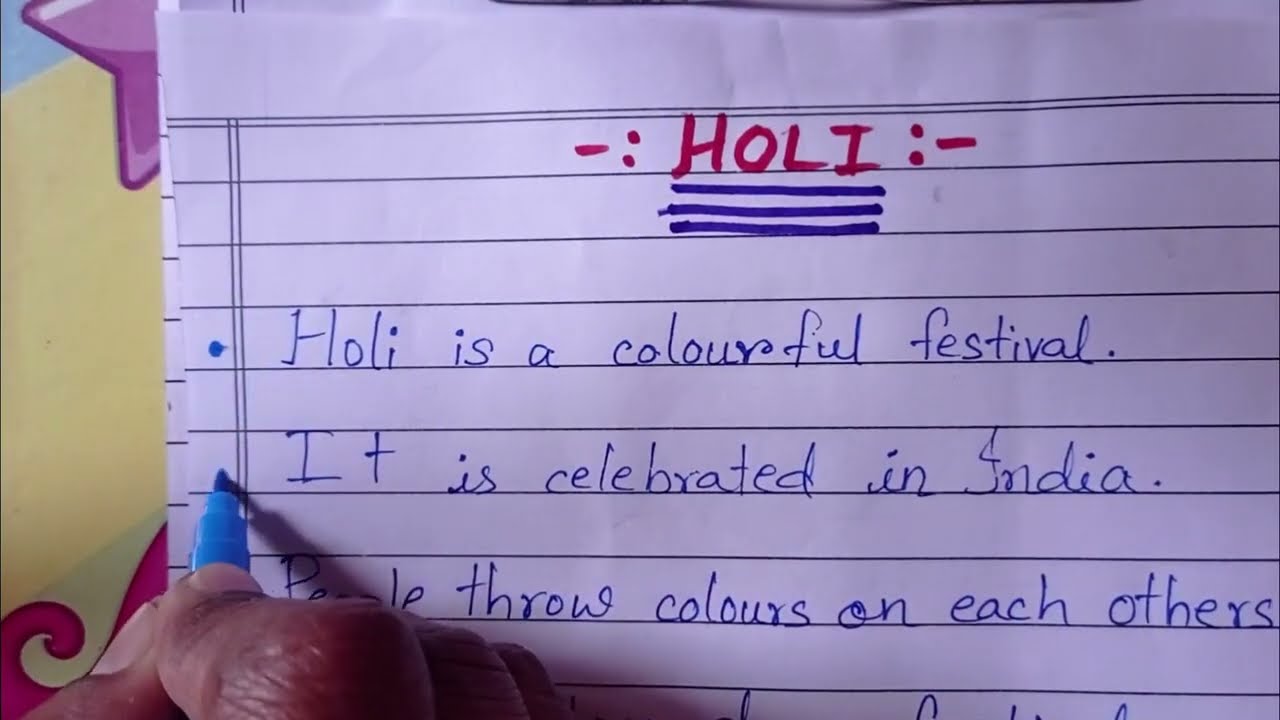 -: HOLI :-
• Holi is a colourful festival.
It is celebrated in India.
People throw colours on each others